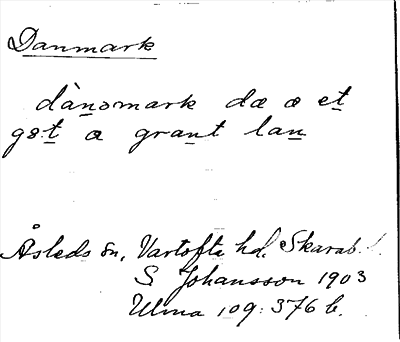 Danmark
dànomark dæ æ et
got æ grant lan
Åsleds sn, Vartofta hd, Skarab. l.
S Johansson 1903
Ulma 109:376 b.